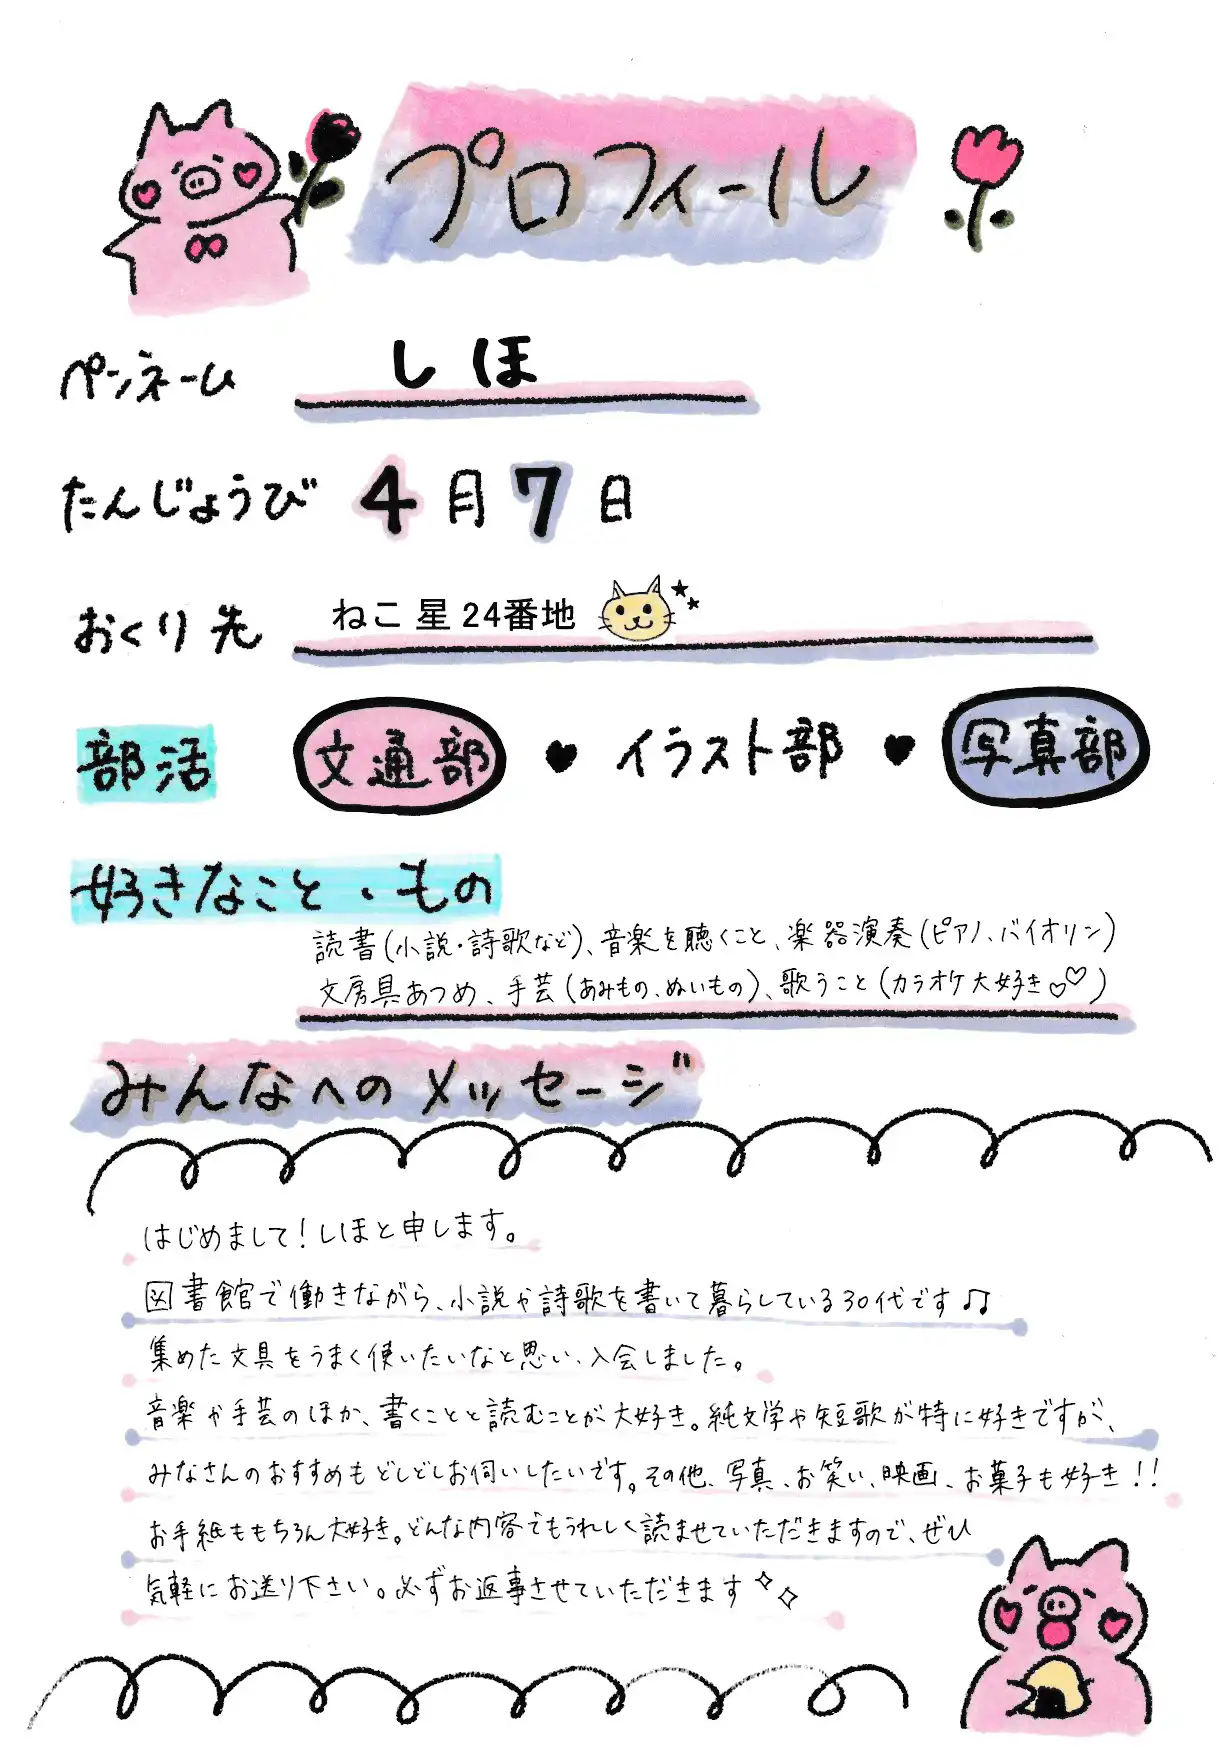 プロフィール
ペンネーム しほ
たんじょうび 4月7日
おくり先 ねこ星24番地
部活 文通部 ♥ イラスト部 ♥ 写真部
好きなこと・もの
読書(小説・詩歌など)、音楽を聴くこと、楽器演奏(ピアノ、バイオリン)
文房具あつめ、手芸(あみもの、ぬいもの)、歌うこと(カラオケ大好き♡♡)
みんなへのメッセージ
はじめまして!しほと申します。
図書館で働きながら、小説や詩歌を書いて暮らしている30代です♫
集めた文具をうまく使いたいなと思い、入会しました。
音楽や手芸のほか、書くことと読むことが大好き。純文学や短歌が特に好きですが、
みなさんのおすすめもどしどしお伺いしたいです。その他、写真、お笑い、映画、お菓子も好き!!
お手紙ももちろん大好き。どんな内容でもうれしく読ませていただきますので、ぜひ
気軽にお送り下さい。必ずお返事させていただきます✧✧